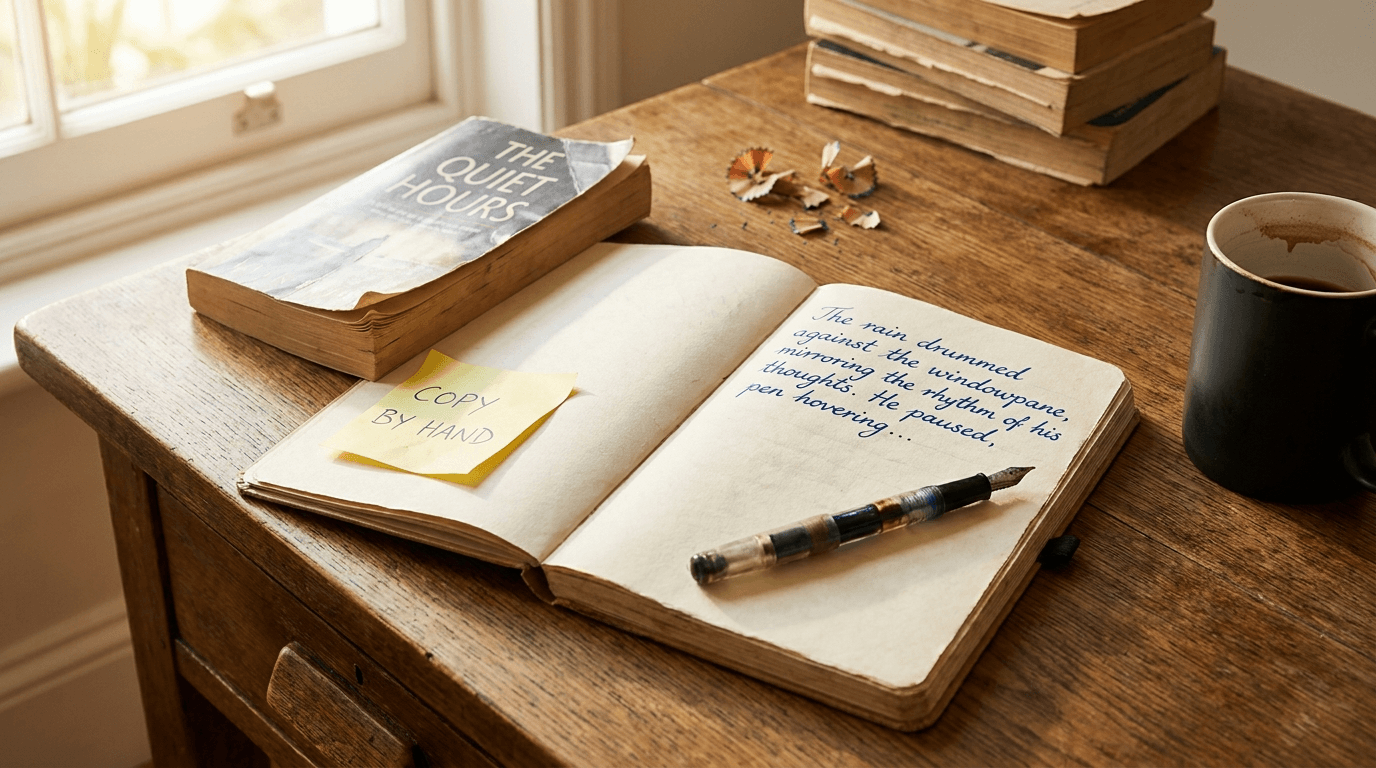 THE
QUIET
HOURS
COPY
BY HAND
The rain drummed
against the windowpane,
mirroring the rhythm of his
thoughts. He paused,
pen hovering...